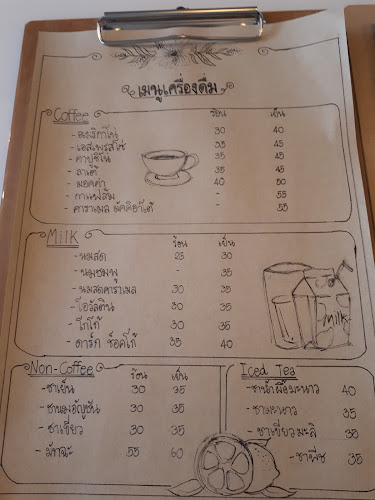 เมนูเครื่องดื่ม
Coffee ร้อน เย็น
- อเมริกาโน่ 30 40
- เอสเพรสโซ่ 35 45
- คาปูชิโน่ 35 45
- ลาเต้ 35 45
- มอคค่า 40 50
- กาแฟส้ม - 55
- คาราเมล มัคคิอาโต้ - 55
Milk ร้อน เย็น
- นมสด 25 30
- นมชมพู - 35
- นมสดคาราเมล 30 35
- โอวัลติน 30 35
- โกโก้ 30 35
- ดาร์ก ช็อคโก้ 35 40
Milk
Non-Coffee ร้อน เย็น
- ชาเย็น 30 35
- ชานมอัญชัน 30 35
- ชาเขียว 30 35
- มัทฉะ 55 60
Iced Tea
- ชาน้ำผึ้งมะนาว 40
- ชามะนาว 35
- ชาเขียวมะลิ 35
- ชาพีช 35